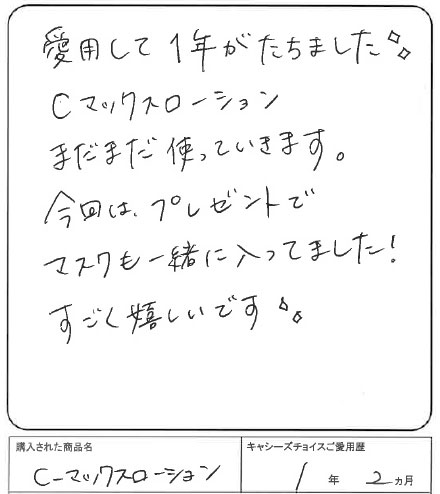 愛用して1年がたちました
Cマックスローション
まだまだ使っていきます。
今回は、プレゼントで
マスクも一緒に入ってました!
すごく嬉しいです
購入された商品名
C-マックスローション
キャシーズチョイスご愛用歴
1年2ヵ月